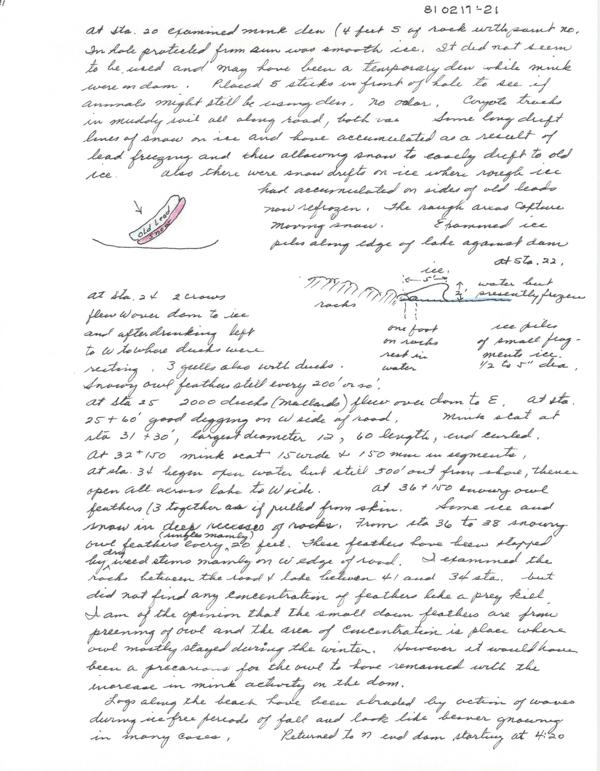 810217-21
At Sta. 20 examined mink den (4 feet S of rock with paint no.
In hole protected from sun was smooth ice. It did not seem
to be used and may have been a temporary den while mink
were on dam. Placed 5 sticks in front of hole to see if
animals might still be using den. No odor. Coyote tracks
in muddy soil all along road, both Some long drift
lines of snow on ice and have accumulated as a result of
lead freezing and thus allowing snow to easely drift to old
ice. Also there were snow drifts on ice where rough ice
had accumulated on sides of old leads
now refrozen. The rough areas capture
moving snow. Examined ice
piles along edge of lake against dam
at Sta. 22.
Old Lead
Snow
ice
5'
2'
water but
presently frozen
rocks
one foot
on rocks
rest in
water
ice piles
of small frag-
ments ice.
1/2 to 5" dia.
At Sta. 24 2 crows
flew W over dam to ice
and after drinking left
to W to where ducks were
resting. 3 gulls also with ducks.
Snowy owl feathers still every 200' or so.
At sta 25 2000 ducks (mallards) flew over dam to E. At sta.
25+60' good digging on W side of road. Mink scat at
sta 31+30', largest diameter 12, 60 length, end curled.
At 32+150 mink scat 15 wide & 150 mm in segments,
at sta. 34 began open water but still 500' out from shore, thence
open all across lake to W side. At 36+150 snowy owl
feathers (3 together as if pulled from skin. Some ice and
snow in deep recesses of rocks. From sta 36 to 38 snowy
owl feathers (singles mainly) every 20 feet. These feathers have been stopped
by dry weed stems mainly on W edge of road. I examined the
rocks between the road & lake between 41 and 34 sta. but
did not find any concentration of feathers like a prey kill
I am of the opinion that the small down feathers are from
preening of owl and the area of concentration is place where
owl mostly stayed during the winter. However it would have
been a precarious for the owl to have remained with the
increase in mink activity on the dam.
Logs along the beach have been abraded by action of waves
during ice free periods of fall and look like beaver gnawing
in many cases. Returned to N end dam starting at 4:20